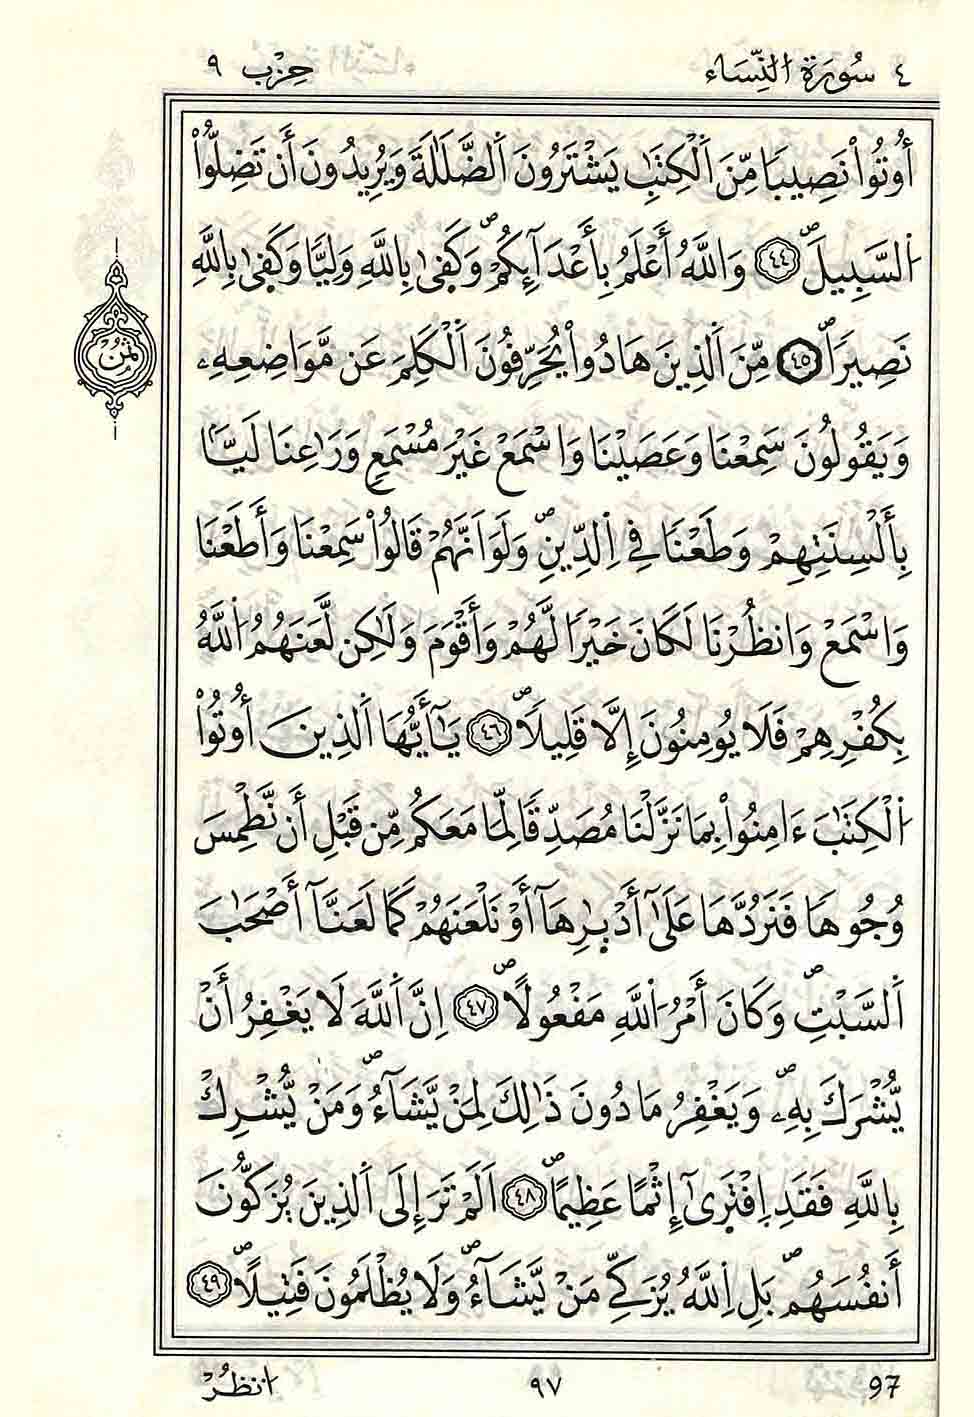 ٤ سُورَةُ النِّسَاء حِزْب ٩
أُوتُوا۟ نَصِيبًا مِّنَ اَ۬لْكِتَٰبِ يَشْتَرُونَ اَ۬لضَّلَٰلَةَ وَيُرِيدُونَ أَن تَضِلُّوا۟
اُ۬لسَّبِيلَۖ ٤٤ وَاللَّهُ أَعْلَمُ بِأَعْدَآئِكُمْۖ وَكَف۪ىٰ بِاللَّهِ وَلِيًّا وَكَف۪ىٰ بِاللَّهِ
نَصِيرًاۖ ٤٥ مِّنَ اَ۬لذِينَ هَادُوا۟ يُحَرِّفُونَ اَ۬لْكَلِمَ عَن مَّوَاضِعِهِۦ
ثُمُن
وَيَقُولُونَ سَمِعْنَا وَعَصَيْنَا وَاسْمَعْ غَيْرَ مُسْمَعٍ وَرَٰعِنَا لَيًّا
بِأَلْسِنَتِهِمْ وَطَعْنًا فِے اِ۬لدِّينِۖ وَلَوَ اَنَّهُمْ قَالُوا۟ سَمِعْنَا وَأَطَعْنَا
وَاسْمَعْ وَانظُرْنَا لَكَانَ خَيْرًا لَّهُمْ وَأَقْوَمَ وَلَٰكِن لَّعَنَهُمُ اُ۬للَّهُ
بِكُفْرِهِمْ فَلَا يُومِنُونَ إِلَّا قَلِيلًاۖ ٤٦ يَٰٓأَيُّهَا اَ۬لذِينَ أُوتُوا۟
اُ۬لْكِتَٰبَ ءَامِنُوا۟ بِمَا نَزَّلْنَا مُصَدِّقًا لِّمَا مَعَكُم مِّن قَبْلِ أَن نَّطْمِسَ
وُجُوهًا فَنَرُدَّهَا عَلَىٰٓ أَدْبٰ۪رِهَآ أَوْ نَلْعَنَهُمْ كَمَا لَعَنَّآ أَصْحَٰبَ
اَ۬لسَّبْتِۖ وَكَانَ أَمْرُ اُ۬للَّهِ مَفْعُولًاۖ ٤٧ اِنَّ اَ۬للَّهَ لَا يَغْفِرُ أَنْ
يُّشْرَكَ بِهِۦۖ وَيَغْفِرُ مَا دُونَ ذَٰلِكَ لِمَنْ يَّشَآءُۖ وَمَنْ يُّشْرِكْ
بِاللَّهِ فَقَدِ اِ۪فْتَر۪ىٰٓ إِثْمًا عَظِيمًاۖ ٤٨ اَلَمْ تَرَ إِلَى اَ۬لذِينَ يُزَكُّونَ
أَنفُسَهُمۖ بَلِ اِ۬للَّهُ يُزَكِّے مَنْ يَّشَآءُۖ وَلَا يُظْلَمُونَ فَتِيلًاۖ ٤٩
97 ٩٧ انظُرْ